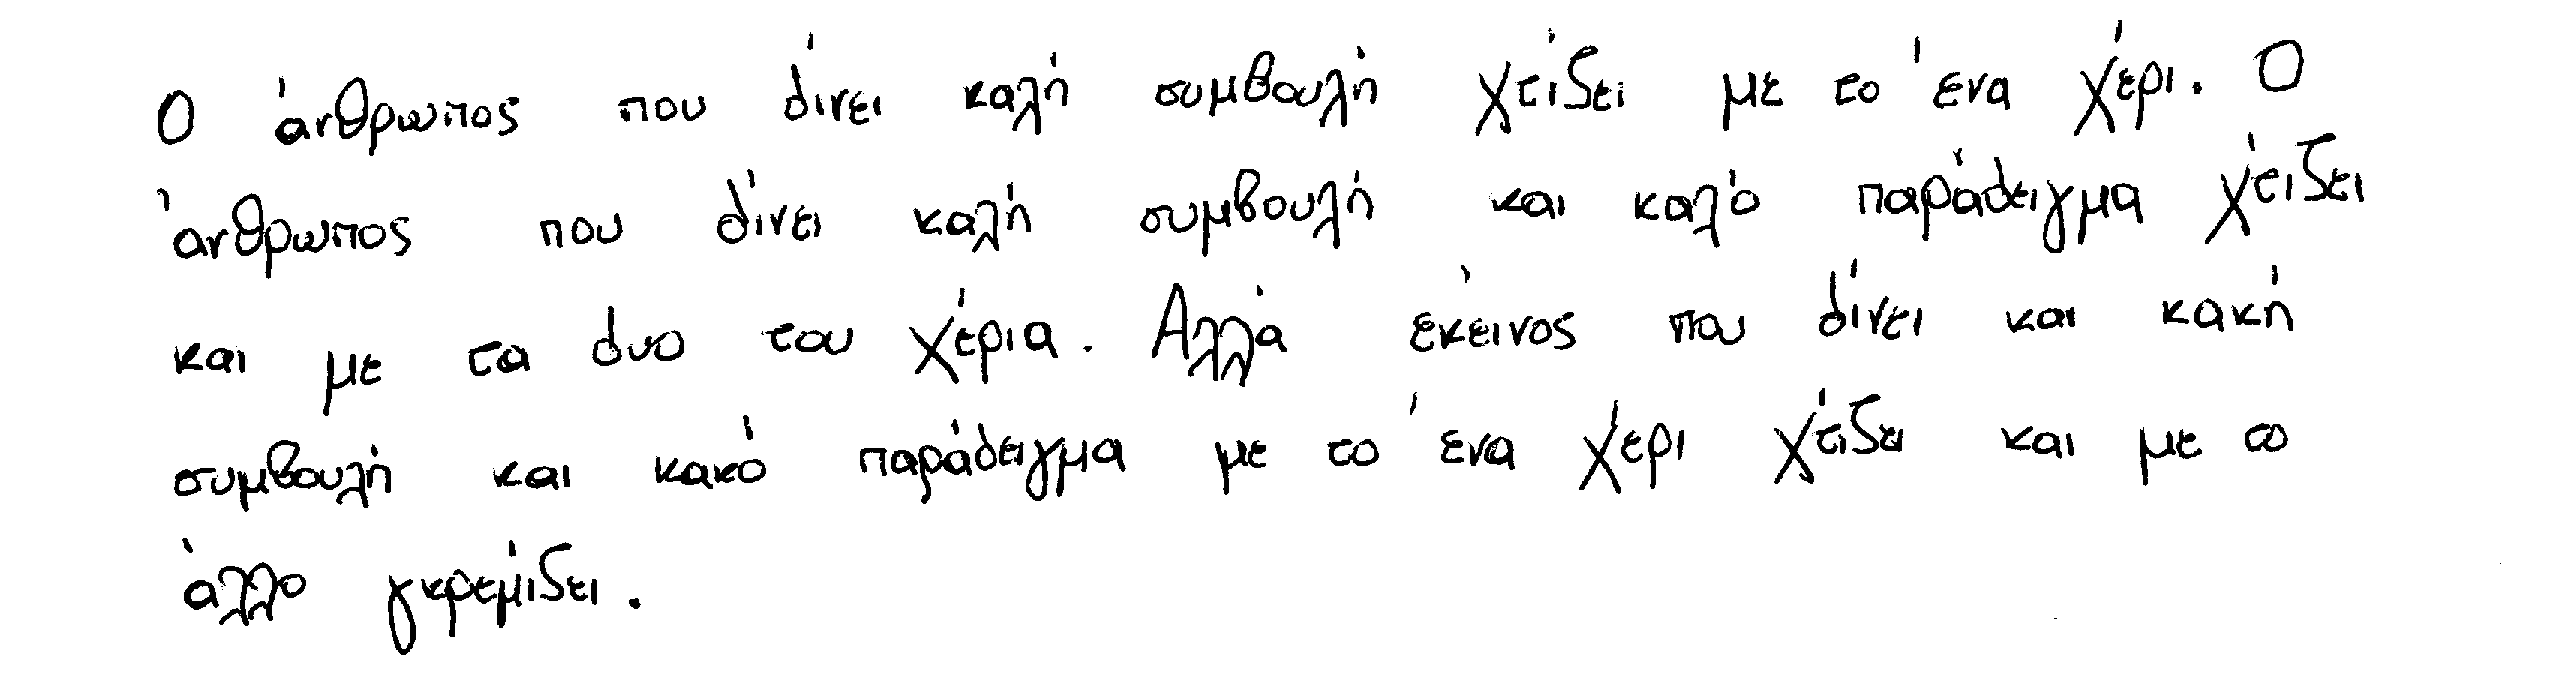 Ο άνθρωπος που δίνει καλή συμβουλή χτίζει με το ένα χέρι. Ο
άνθρωπος που δίνει καλή συμβουλή και καλό παράδειγμα χτίζει
και με τα δυο του χέρια. Αλλά εκείνος που δίνει και κακή
συμβουλή και κακό παράδειγμα με το ένα χέρι χτίζει και με το
άλλο γκρεμίζει.